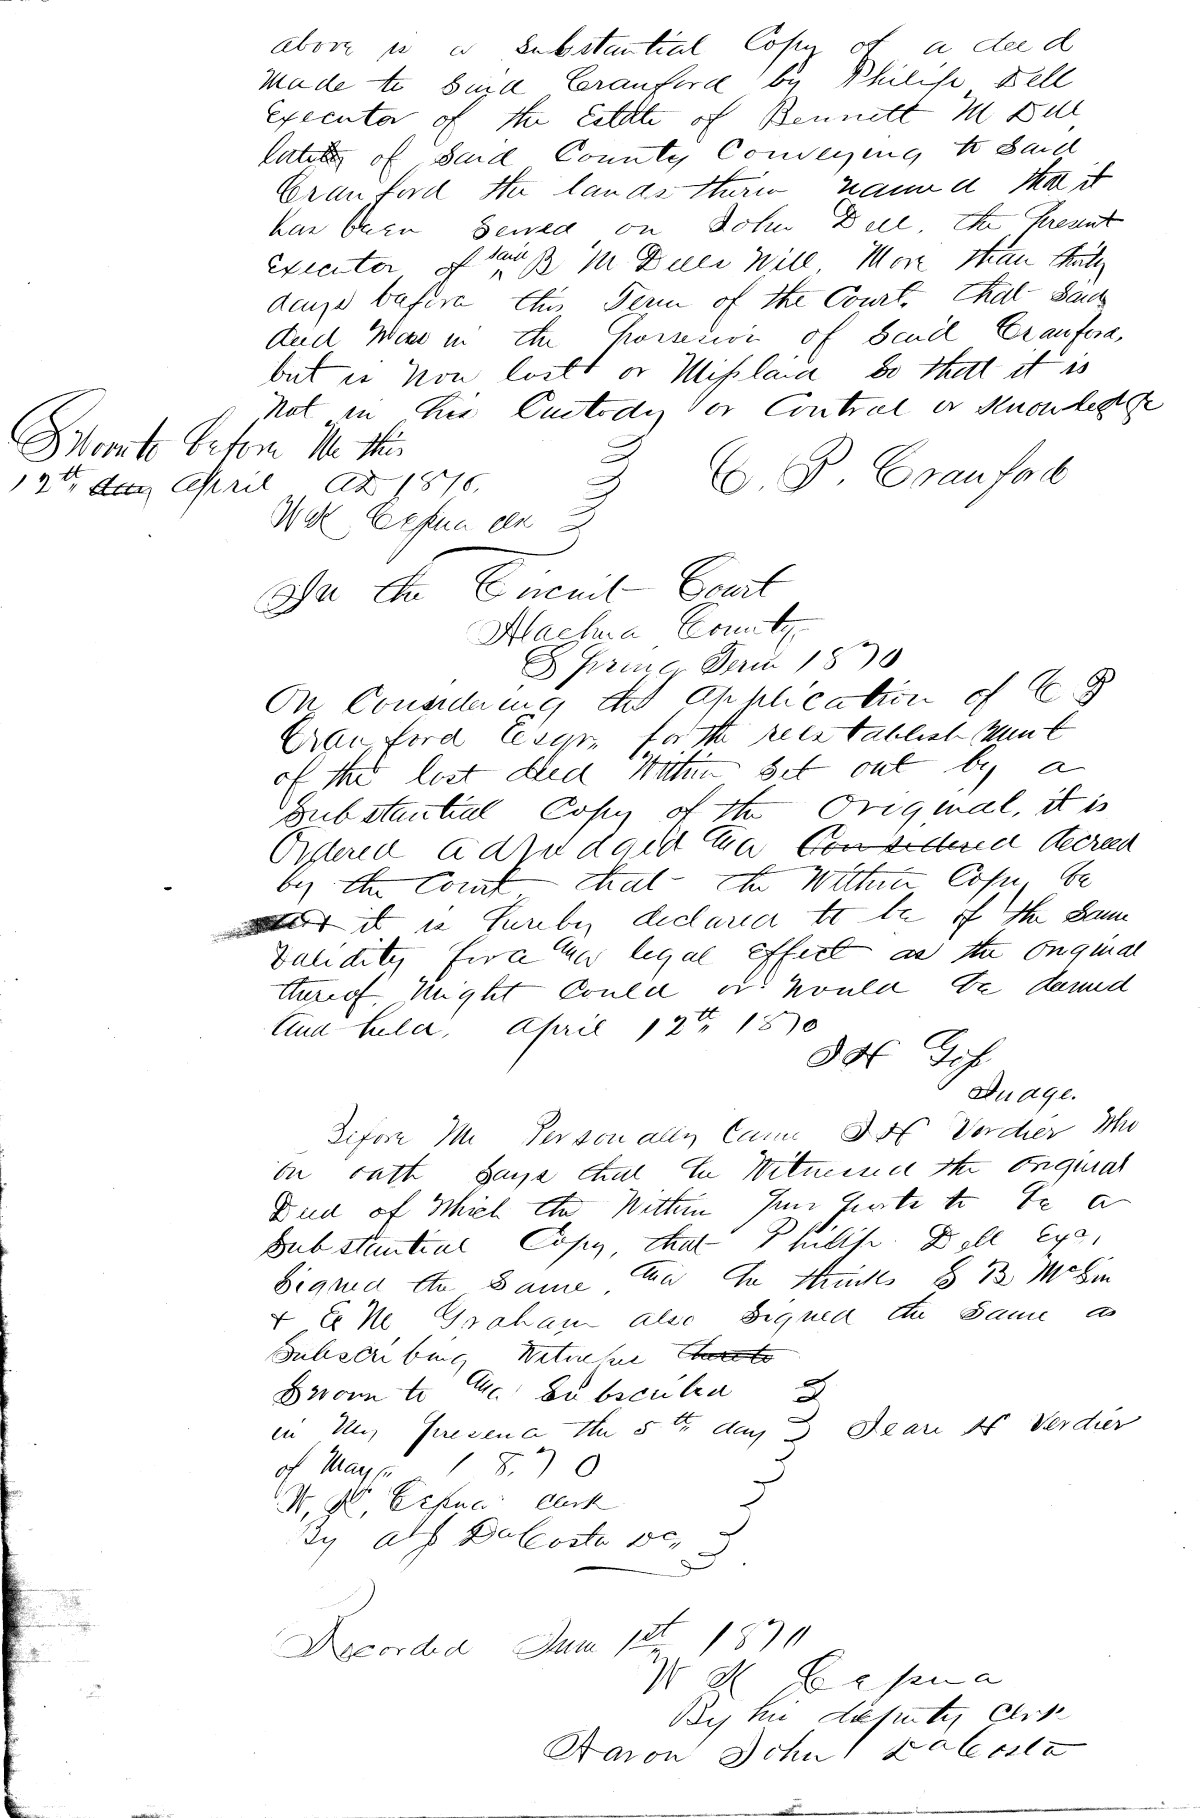 above is a Substantial Copy of a deed
Made to Said Cranford by Philip Dell
Executor of the Estate of Bennett M Dell
late of Said County Conveying to Said
Cranford the lands therin named that it
has been Served on John Dell, the present
Executor of said B M Dells Will, More than thirty
days before this Term of the Court. that Said
deed Was in the possession of Said Cranford,
but is Now lost or Mislaid So that it is
Not in his Custody or Control or Knowledge
Sworn to before Me this
12th day April AD 1870.
C. P. Cranford
W K Cessna Clk
In the Circuit Court
Alachua County
Spring Term 1870
On Considering the application of C P
Cranford Esqr. for the reestablishment
of the lost deed Within Set out by a
Substantial Copy of the Original, it is
Ordered adjudged and Considered decreed
by the Court that the Within Copy be
and it is hereby declared to be of the Same
Validity force and legal effect as the Original
thereof Might Could or Would be deemed
And held, April 12th 1870
J H Goss
Judge.
Before Me Personally Came J H Verdier Who
on oath Says that he Witnessed the Original
Deed of Which the Within purports to be a
Substantial Copy, that Philip Dell Exr,
Signed the Same, and he thinks S B McLin
+ E M Graham also Signed the Same as
Subscribing Witnesses thereto
Sworn to and Subscribed
in My presence the 5th day
Verdier
of May 1870
W, K, Cessna Clerk
By A J DaCosta DC,
Recorded June 1st 1870
W K Cessna
By his deputy Clerk
Aaron John DaCosta